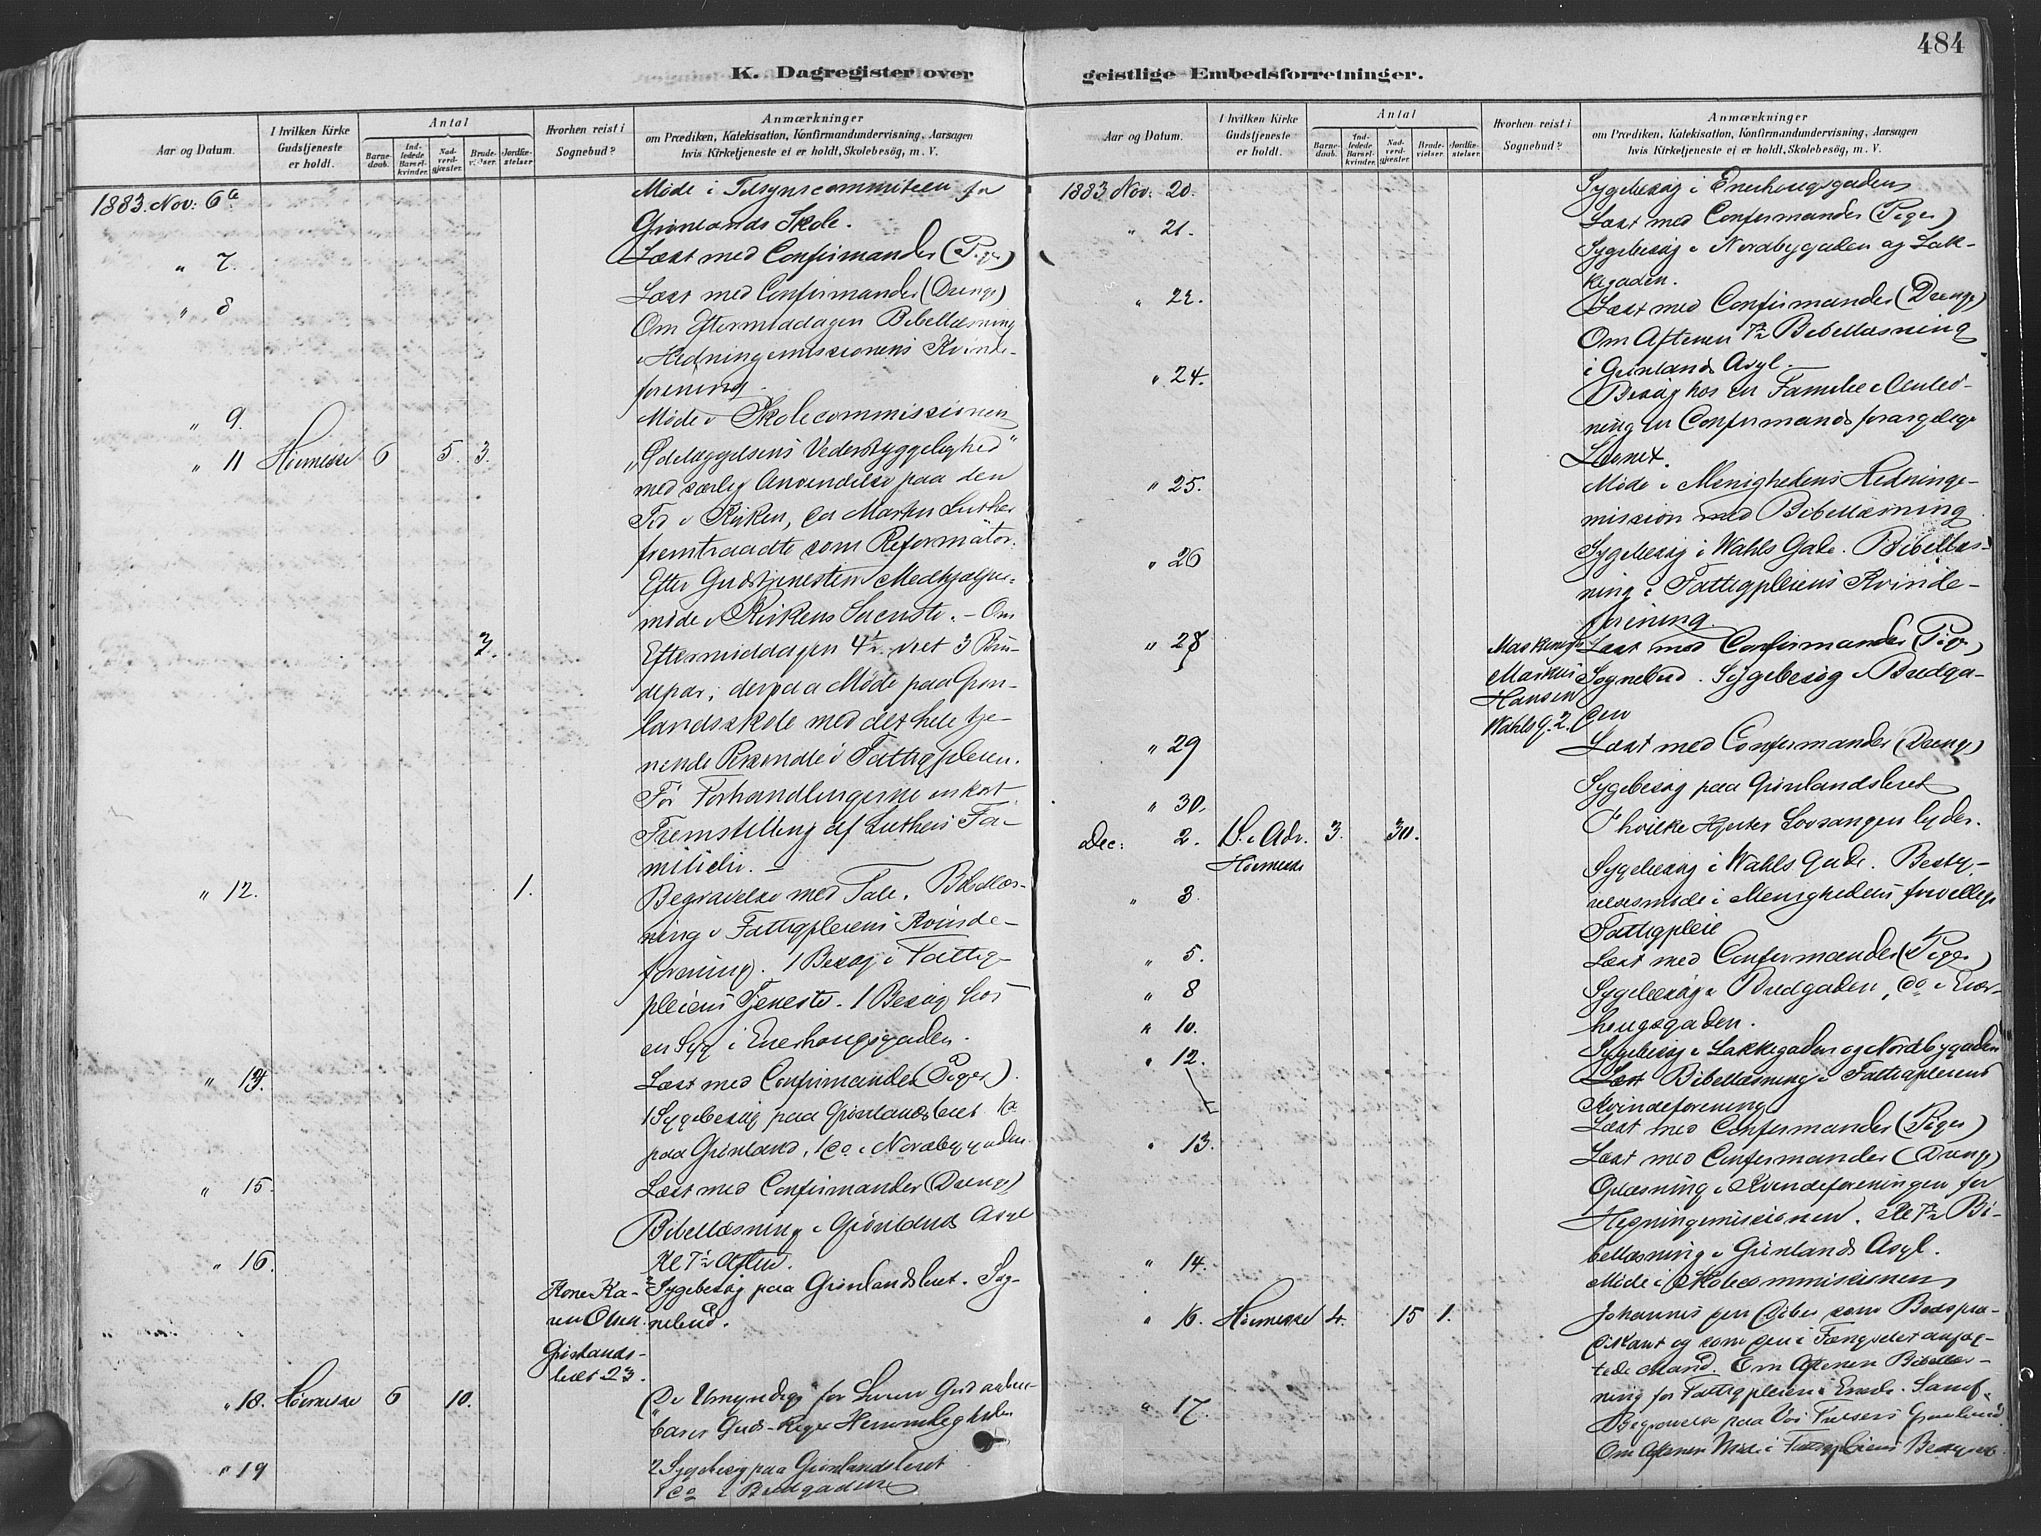 484
K. Dagregister over geistlige Embedsforretninger.
Aar og Datum.
I hvilken Kirke Gudstjeneste er holdt.
Antal
Barnedaab.
Indledede Barselkvinder.
Nadverdgjæster.
Brudevielser.
Jordfæstelser.
Hvorhen reist i Sognebud?
Anmærkninger
om Prædiken, Katekisation, Konfirmandundervisning, Aarsagen
hvis Kirketjeneste ei er holdt, Skolebesög, m. V.
1883. Nov: 6te Møde i Tilsynscommiteen for
Grønlands Skole.
" 7. Læst med Confirmander (Piger)
" 8 Læst med Confirmander (Drenge)
Om Eftermiddagen Bibellæsning
i Hedningemissionens Kvinde-
forening.
" 9. Møde i Skolecommissionen
" 11 Høimesse 6 5. 3. "Ødelæggelsens Vederstyggelighed"
med særlig Anvendelse paa den
Tid i Kirken, da Martin Luther
fremtraadte som Reformator.
Efter Gudstjenesten Medhjælper-
møde i Kirkens Sacristi. - Om
3. Eftermiddagen 4½ viet 3 Bru-
depar; derpaa Møde paa Grøn-
landsskole med det hele tje-
nende Personale i Fattigpleien.
Før Forhandlingerne en kort
Fremstilling af Luthers Fa-
milieliv. -
" 12. 1. Begravelse med Tale. Bibellæs-
ning i Fattigpleiens Kvinde-
forening. 1 Besøg i Fattig-
pleiens Tjeneste. 1 Besøg hos
en Syg i Enerhougsgaden.
" 14. Læst med Confirmander (Piger).
1 Sygebesøg paa Grønlandsleret 1 do
paa Grønland, 1 do i Nordbygaden.
" 15. Læst med Confirmander (Drenge)
Bibellæsning i Grønlands Asyl
Kl 7½ Aften.
" 16. Kone Ka- 2 Sygebesøg paa Grønlandsleret. Sog-
ren Olsen nebud.
Grønlands-
leret 23.
" 18. Høimesse 6 10. "De Umyndige" for hvem Gud aaben-
barer Guds-Riges Hemmeligheder
" 19 2 Sygebesøg paa Grønlandsleret
1 do i Bredgaden
Aar og Datum.
I hvilken Kirke Gudstjeneste er holdt.
Antal
Barnedaab.
Indledede Barselkvinder.
Nadverdgjæster.
Brudevielser.
Jordfæstelser.
Hvorhen reist i Sognebud?
Anmærkninger
om Prædiken, Katekisation, Konfirmandundervisning, Aarsagen
hvis Kirketjeneste ei er holdt, Skolebesög, m. V.
1883 Nov: 20. Sygebesøg i Enerhougsgaden
" 21. Læst med Confirmander (Piger)
Sygebesøg i Nordbygaden og Lak-
kegaden.
" 22. Læst med Confirmander (Drenge)
Om Aftenen 7½ Bibellæsning
i Grønlands Asyl.
" 24. Besøg hos en Familie i Anled-
ning en Confirmands forargelige
Levnet.
" 25. Møde i Menighedens Hedninge-
mission med Bibellæsning
" 26 Sygebesøg i Wahls Gade. Bibellæs-
ning i Fattigpleiens Kvinde-
forening.
" 28 Læst med Confirmander (Piger)
Markus Sognebud. Sygebesøg i Bredga-
Hansen den
Wahls G. 2.
" 29 Læst med Confirmander (Drenge)
" 30. Sygebesøg paa Grønlandsleret
Dec: 2. 1 S. i Adv. 3. 30. I hvilke Hjerter Lovsangen lyder.
Høimesse
" 3. Sygebesøg i Wahls Gade. Besty-
relsesmøde i Menighedens frivillige
Fattigpleie
" 5. Læst med Confirmander (Piger)
" 8 Sygebesøg i Bredgaden, do i Ener-
hougsgaden.
" 10. Sygebesøg i Lakkegaden og Nordbygaden
Læst Bibellæsning i Fattigpleiens
Kvindeforening
" 12. Læst med Confirmander (Piger)
" 13. Læst med Confirmander (Drenge)
Oplæsning i Kvindeforeningen for
Hedningemissionen. Kl 7½ Bi-
bellæsning i Grønlands Asyl.
" 14. Møde i Skolecommissionen
" 16. Høimesse 4. 15 1. Johannes den Døber som Bodspræ-
dikant og som den i Fængslet anfæg-
tede Mand. Om Aftenen Bibellæs-
ning for Fattigpleien
" 17. Begravelse paa Vor Frelsers Gravlund
Om Aftenen Møde i Fattigpleiens